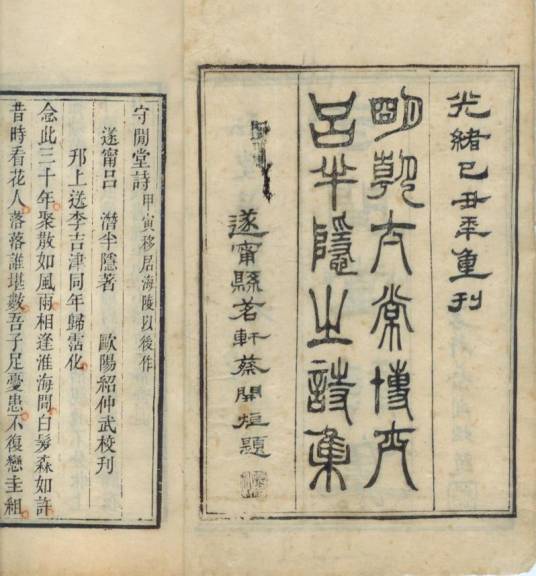 光緒己丑年重刊
明朝太常博士
呂半隱之詩集
遂甯縣茗軒蔡開炬題
守閒堂詩 甲寅移居海陵以後作
遂甯呂 潛半隱著 歐陽紹仲武校刊
邗上送李吉津同年歸霑化
念此三十年聚散如風雨相逢淮海間白髮森如許
昔時看花人落落誰堪數吾子足憂患不復戀圭組